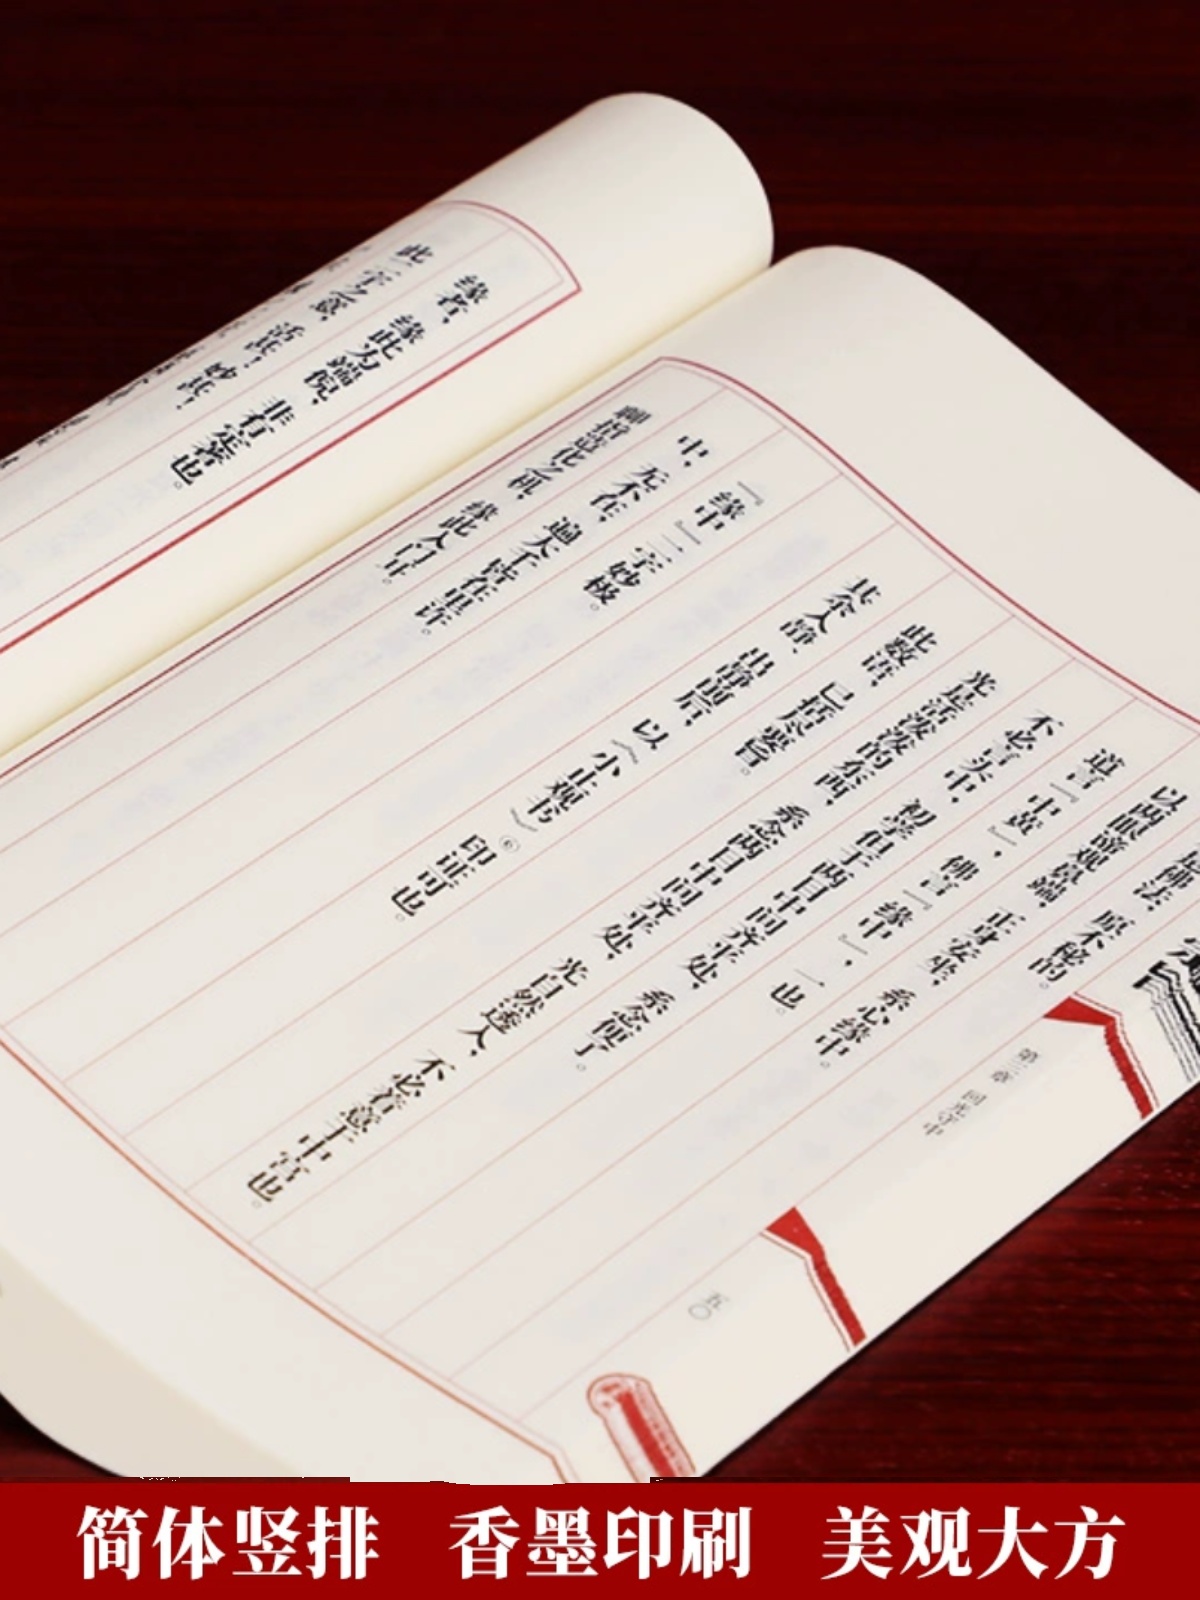 是佛法，原不秘的。
以两眼谛观鼻端，正身安坐，系心缘中。
道言『中黄』，佛言『缘中』，一也。
不必言头中，初学但于两目中间齐平处，系念便了。
光是活泼泼的东西，系念两目中间齐平处，光自然透入，不必着意于中宫也。
此数语，已括尽要旨。
其余入静、出静前后，以《小止观书》⑥印证可也。
『缘中』二字妙极。
中，无不在，遍大千皆在里许。
聊指造化之机，缘此入门耳。
缘者，缘此为端倪，非有定著也。
此二字之意，活甚！妙甚！
第三章 回光守中
五〇
简体竖排 香墨印刷 美观大方